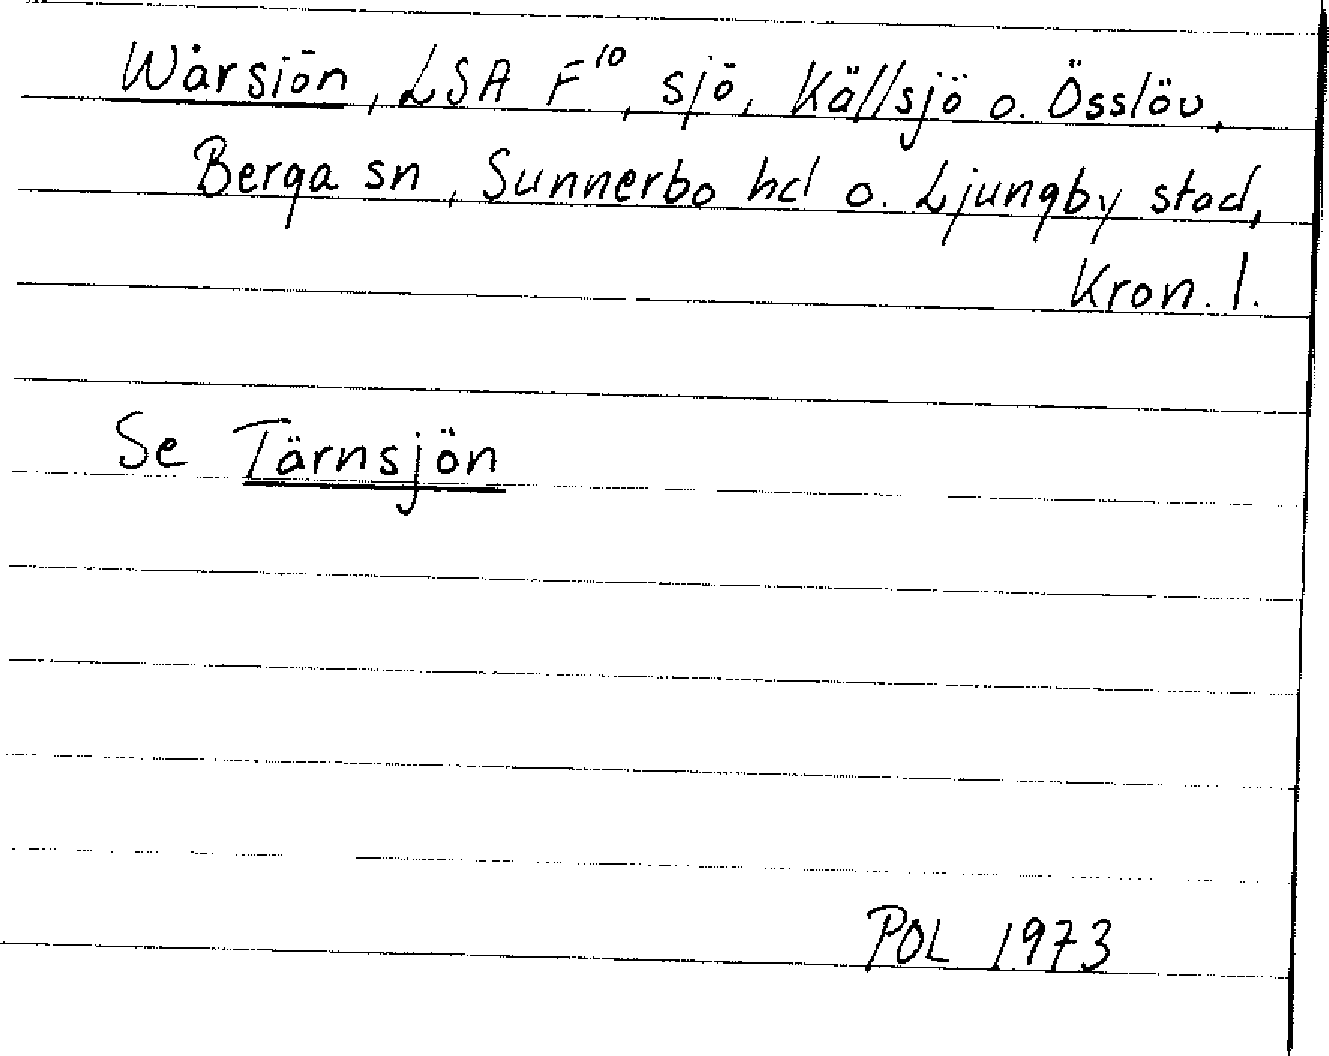 Wårsiön, LSA F¹⁰, sjö, Källsjö o. Össlöv,
Berga sn, Sunnerbo hd o. Ljungby stad,
Kron. l.
Se Tärnsjön
POL 1973